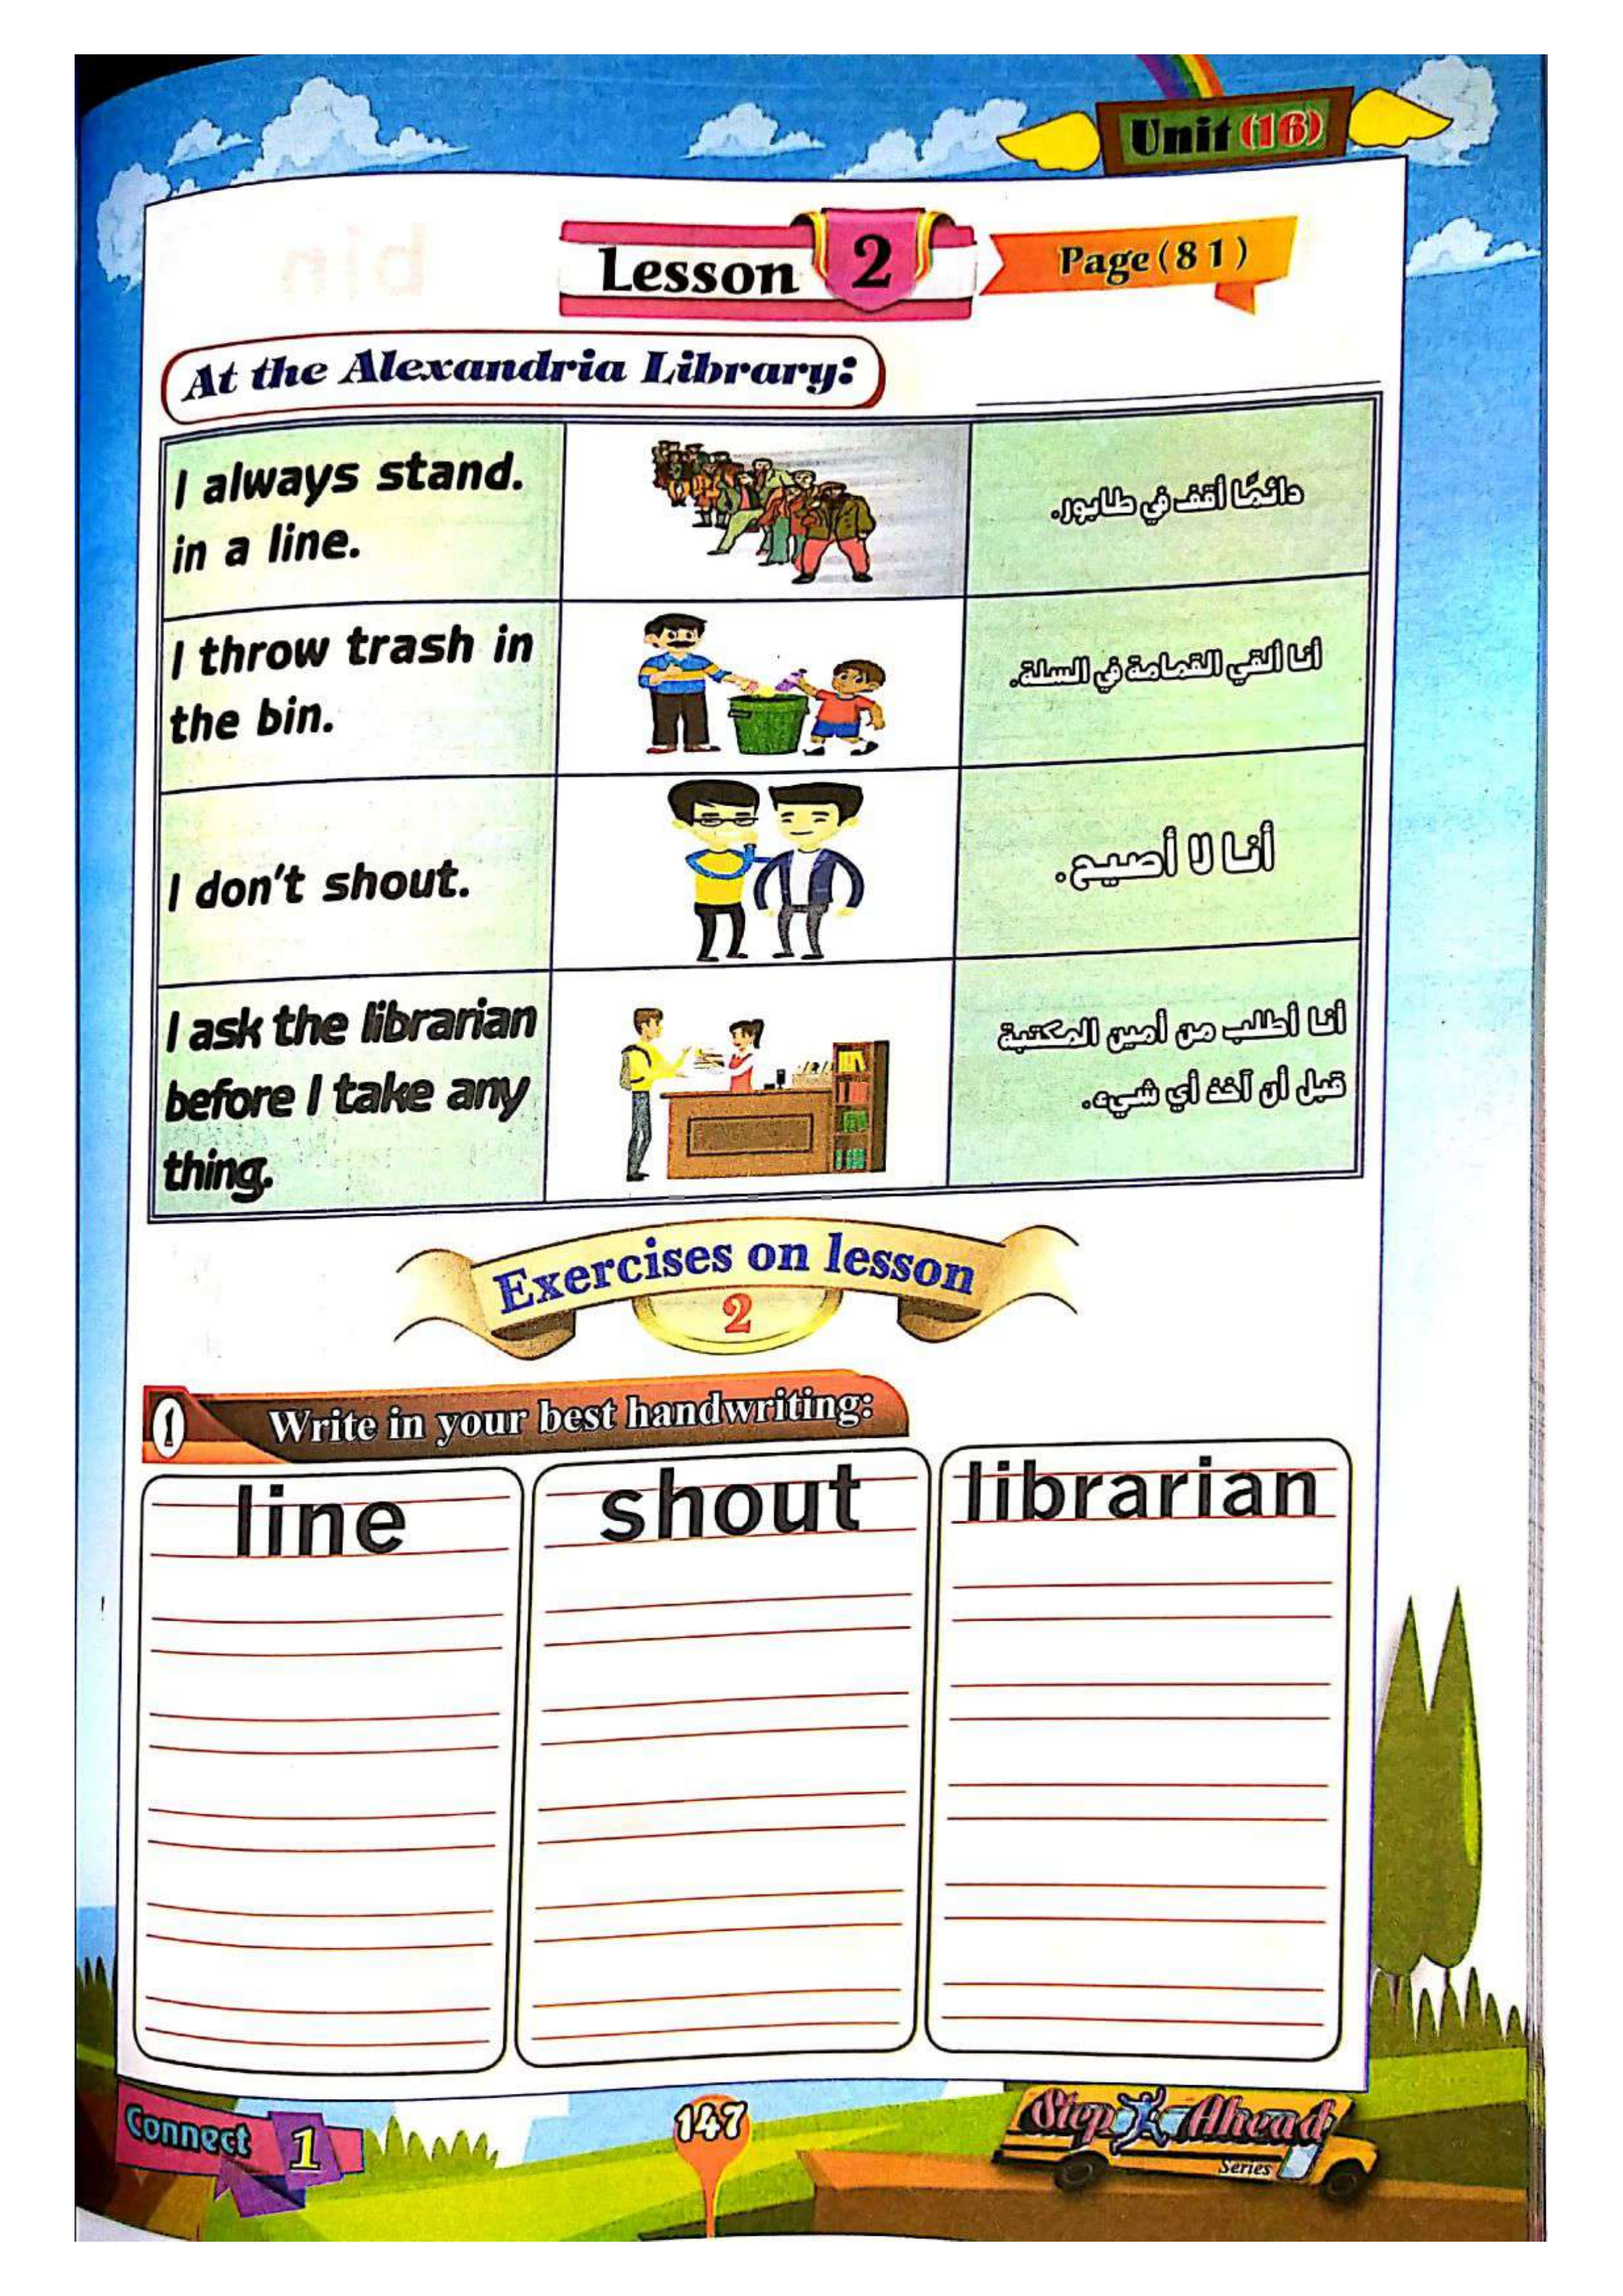 Unit (16)
Lesson 2
Page (81)
At the Alexandria Library:
I always stand.
in a line.
دائمًا أقف في طابور.
I throw trash in
the bin.
أنا ألقي القمامة في السلة.
I don't shout.
أنا لا أصيح.
I ask the librarian
before I take any
thing.
أنا أطلب من أمين المكتبة
قبل أن آخذ أي شيء.
Exercises on lesson
2
1 Write in your best handwriting:
line
shout
librarian
Connect 1
147
Step Ahead
Series